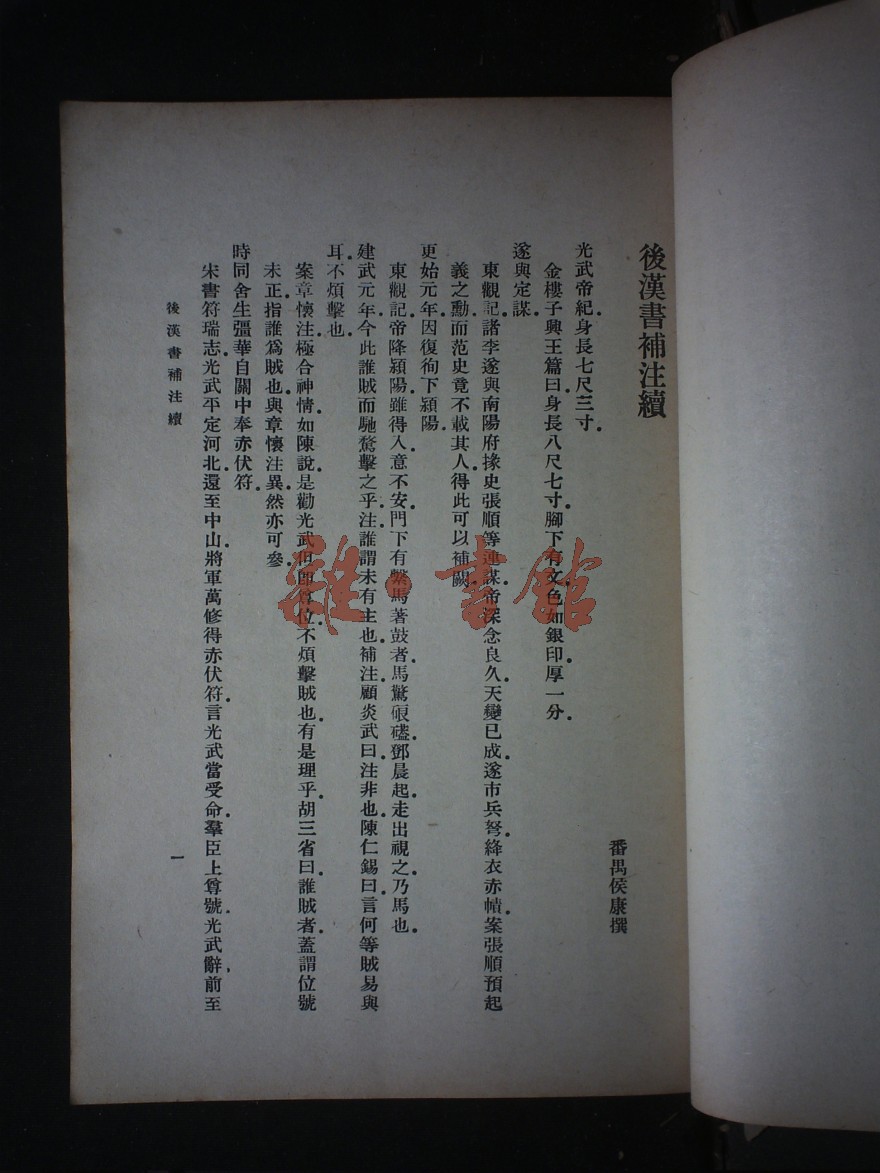 後漢書補注續
番禺侯康撰
光武帝紀身長七尺三寸.
金樓子興王篇曰身長八尺七寸.腳下有文.色如銀印.厚一分.
遂與定謀.
東觀記.諸李遂與南陽府掾史張順等連謀.帝深念良久.天變已成.遂市兵弩.絳衣赤幘.案張順預起
義之勳.而范史竟不載其人.得此可以補闕.
更始元年.因復徇下潁陽.
東觀記.帝降潁陽.雖得入.意不安.門下有繫馬著鼓者.馬驚硠磕.鄧晨起.走出視之.乃馬也.
建武元年.今此誰賊而馳騖擊之乎.注.誰謂未有主也.補注.顧炎武曰.注非也.陳仁錫曰.言何等賊易與
耳.不煩擊也.
案章懷注.極合神情.如陳說.是勸光武但即尊位.不煩擊賊也.有是理乎.胡三省曰.誰賊者.蓋謂位號
未正.指誰爲賊也.與章懷注異.然亦可參.
時同舍生彊華自關中奉赤伏符.
宋書符瑞志.光武平定河北.還至中山.將軍萬修得赤伏符.言光武當受命.羣臣上尊號.光武辭.前至
後漢書補注續
一
雜·書館